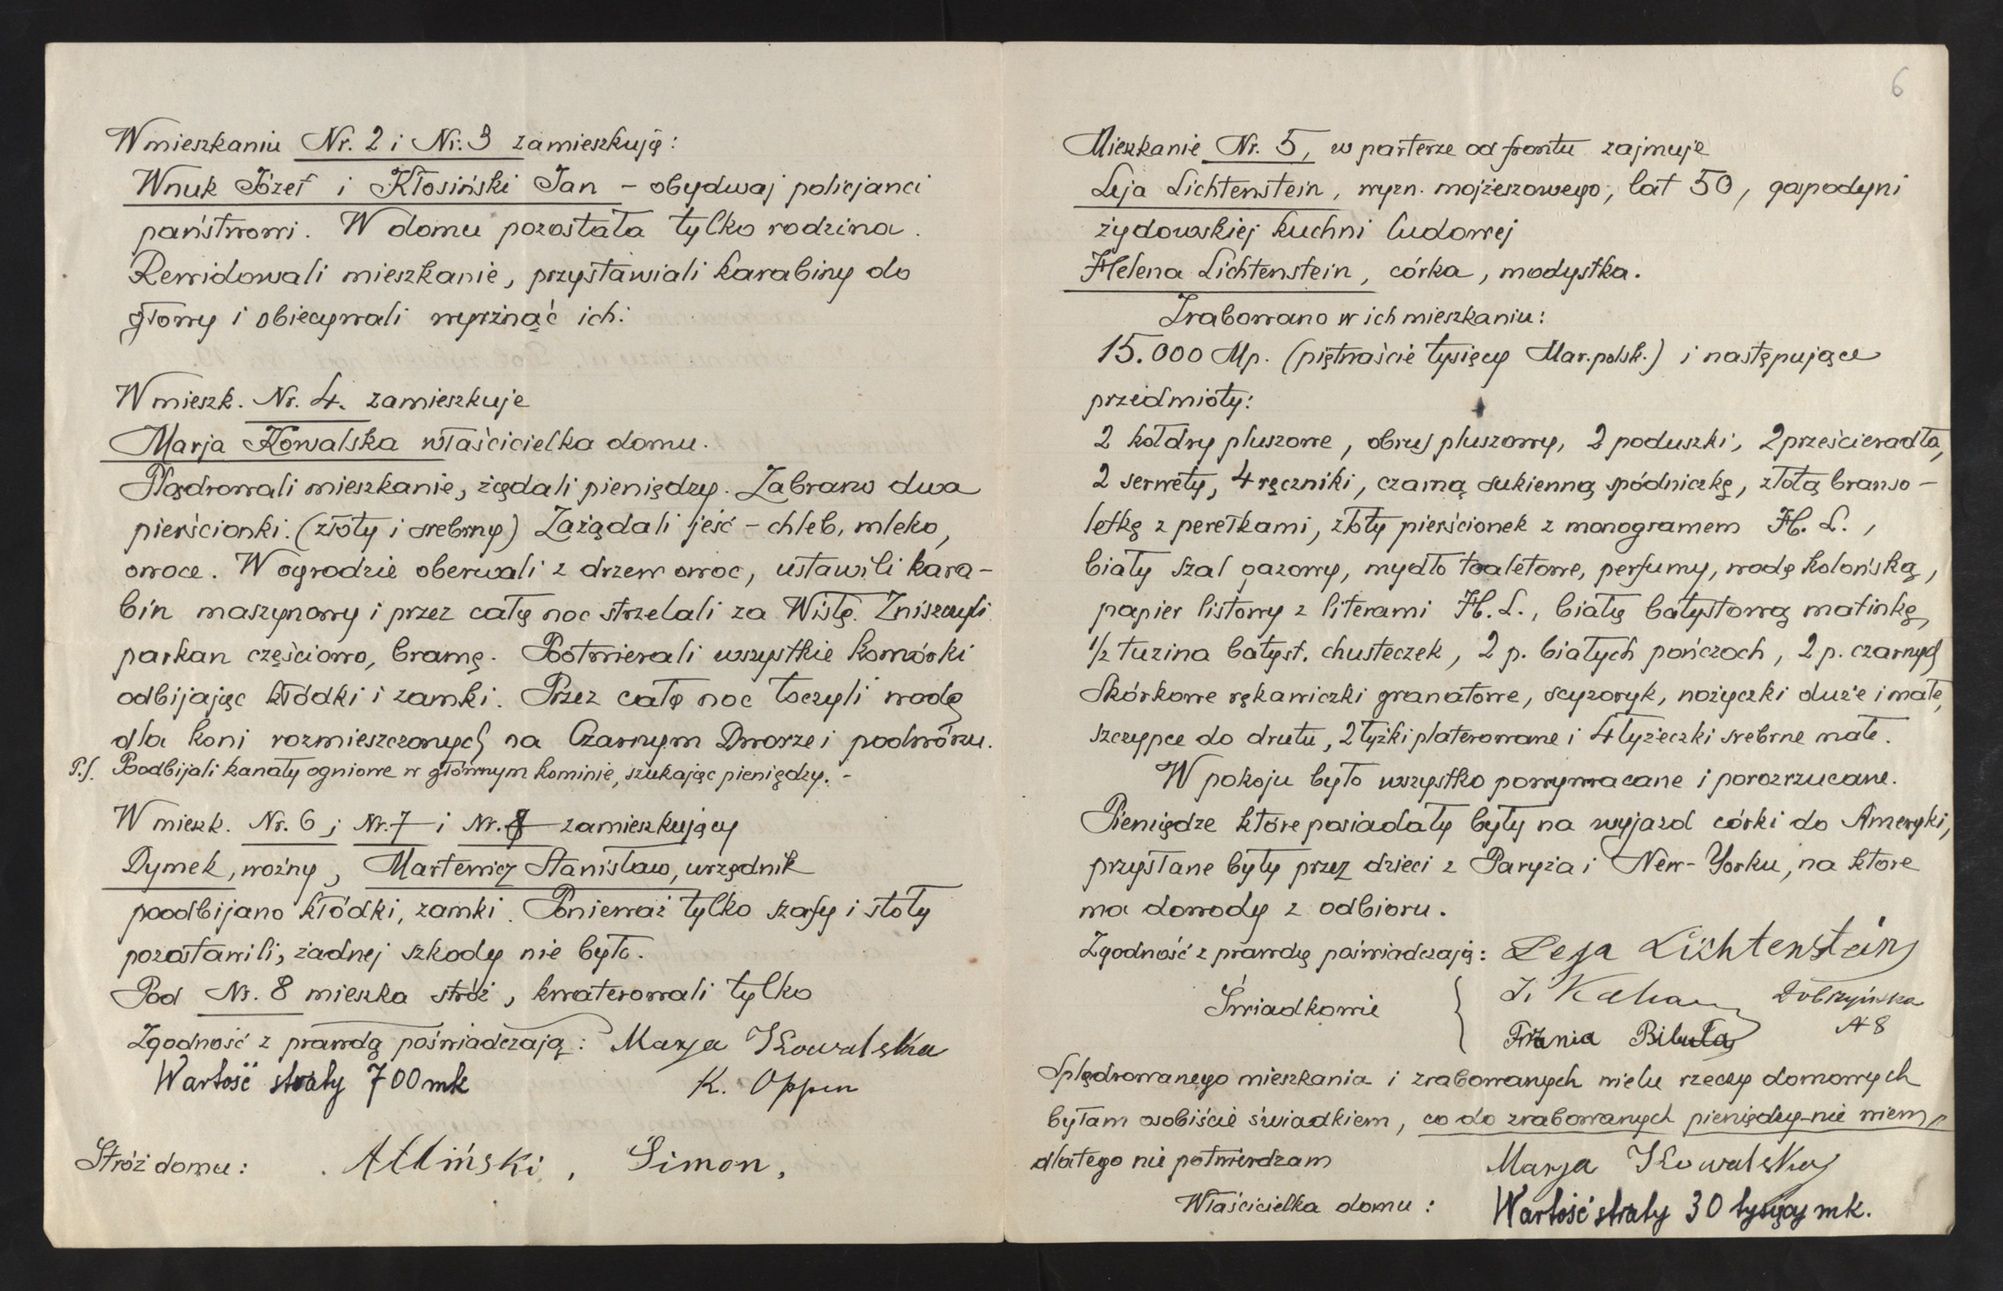 W mieszkaniu Nr. 2 i Nr. 3 zamieszkują:
Wnuk Józef i Kłosiński Jan – obydwaj policjanci
państwowi. W domu pozostała tylko rodzina.
Rewidowali mieszkanie, przystawiali karabiny do
głowy i obiecywali wyrżnąć ich.
W mieszk. Nr. 4. zamieszkuje
Marja Kowalska właścicielka domu.
Plądrowali mieszkanie, żądali pieniędzy. Zabrano dwa
pierścionki. (złoty i srebrny) Zażądali jeść – chleb, mleko,
owoce. W ogrodzie oberwali z drzew owoc, ustawili kara-
bin maszynowy i przez całą noc strzelali za Wisłę. Zniszczyli
parkan częściowo, bramę. Pootwierali wszystkie komórki
odbijając kłódki i zamki. Przez całą noc toczyli wodę
dla koni rozmieszczonych na Czarnym Dworze i podwórzu.
P.S. Poodbijali kanały ogniowe w głównym kominie, szukając pieniędzy. –
W mieszk. Nr. 6 i Nr. 7 i Nr. 8 zamieszkujący
Dymek, woźny, Martewicz Stanisław, urzędnik
poodbijano kłódki, zamki. Ponieważ tylko szafy i stoły
pozostawili, żadnej szkody nie było.
Pod Nr. 8 mieszka stróż, kwaterowali tylko
Zgodność z prawdą poświadczają: Marja Kowalska
Wartość straty 700 mk K. Oppen
Stróż domu: Simon,
6
Mieszkanie Nr. 5, w parterze od frontu zajmuje
Leja Lichtenstein, wyzn. mojżeszowego, lat 50, gospodyni
żydowskiej kuchni ludowej
Helena Lichtenstein, córka, modystka.
Zrabowano w ich mieszkaniu:
15.000 Mp. (piętnaście tysięcy Mar. polsk.) i następujące
przedmioty:
2 kołdry pluszowe, obrus pluszowy, 2 poduszki, 2 prześcieradła,
2 serwety, 4 ręczniki, czarną sukienną spódniczkę, złotą branso-
letkę z perełkami, złoty pierścionek z monogramem H. L.,
biały szal gazowy, mydło toaletowe, perfumy, wodę kolońską,
papier listowy z literami H. L., białą batystową matinkę,
1/2 tuzina batyst. chusteczek, 2 p. białych pończoch, 2 p. czarnych
Skórkowe rękawiczki granatowe, scyzoryk, nożyczki duże i małe,
szczypce do drutu, 2 łyżki platerowane i 4 łyżeczki srebrne małe.
W pokoju było wszystko powywracane i porozrzucane.
Pieniądze które posiadały były na wyjazd córki do Ameryki,
przysłane były przez dzieci z Paryża i New-Yorku, na które
ma dowody z odbioru.
Zgodność z prawdą poświadczają: Leja Lichtenstein
Świadkowie J. Kahan Dobrzyńska
№ 8
Frania Bibuła
Splądrowanego mieszkania i zrabowanych wielu rzeczy domowych
byłam osobiście świadkiem, co do zrabowanych pieniędzy nie wiem,
dlatego nie potwierdzam Marja Kowalska
Właścicielka domu: Wartość straty 30 tysięcy mk.